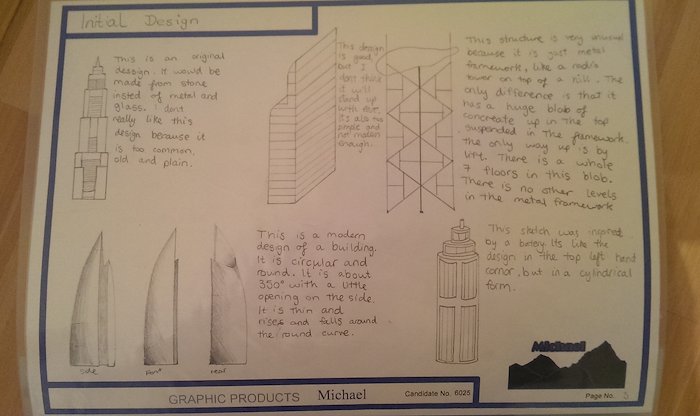 Initial Design
This is an original
dessign. It would be
made from stone
insted of metal and
glass. I dont
really like this
design because it
is too common,
old and plain.
This design
is good,
but I
dont think
it will
stand up
with
It's also too
simple and
not modern
enough.
This structure is very unusual
because it is just metal
framework, like a radio
tower on top of a hill. The
only difference is that it
has a huge blob of
concreate up in the top
suspended in the framework.
The only way up is by
lift. There is a whole
7 floors in this blob.
There is no other levels
in the metal framework
This is a modern
design of a building.
It is circular and
round. It is about
350° with a little
opening on the side.
It is thin and
rises and falls around
the round curve.
This sketch was inspired
by a battery. Its like the
design in the top left hand
cornor, but in a cylindrical
form.
side
front
rear
Michael
GRAPHIC PRODUCTS Michael Candidate No. 6025
Page No. 3